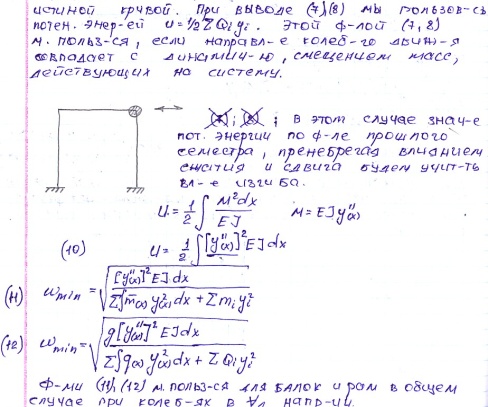 истиной кривой. При выводе (7)(8) мы пользов-сь
потен. энер-ей U = 1/2 Σ Qi yi. Этой ф-лой (7,8)
м. польз-ся, если направл-е колеб-го движ-я
совпадает с динамич-ю, смещением масс,
действующих на систему.
; в этом случае знач-е
пот. энергии по ф-ле прошлого
семестра, пренебрегая влиянием
сжатия и сдвига будем учит-ть
вл-е изгиба.
U = 1/2 ∫ M²dx / EJ M = EJ y''(x)
(10) U = 1/2 ∫ [y''(x)]² EJ dx
(11) ωmin = √( [y''(x)]² EJ dx / Σ∫ m̄(x) y²(x) dx + Σ mi yi² )
(12) ωmin = √( g[y''(x)]² EJ dx / Σ∫ q(x) y²(x) dx + Σ Qi yi² )
Ф-ми (11), (12) м. польз-ся для балок и рам в общем
случае при колеб-ях в ∀л напр-ии.